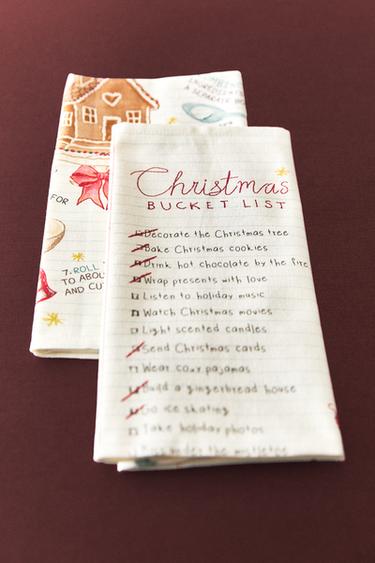 A SEPARATE
FOR
7. ROLL
TO ABOU
AND CU
Christmas
BUCKET LIST
Decorate the Christmas tree
Bake Christmas cookies
Drink hot chocolate by the fire
Wrap presents with love
Listen to holiday music
Watch Christmas movies
Light scented candles
Send Christmas cards
Wear cozy pajamas
Build a gingerbread house
Go ice skating
Take holiday photos
Kiss under the mistletoe